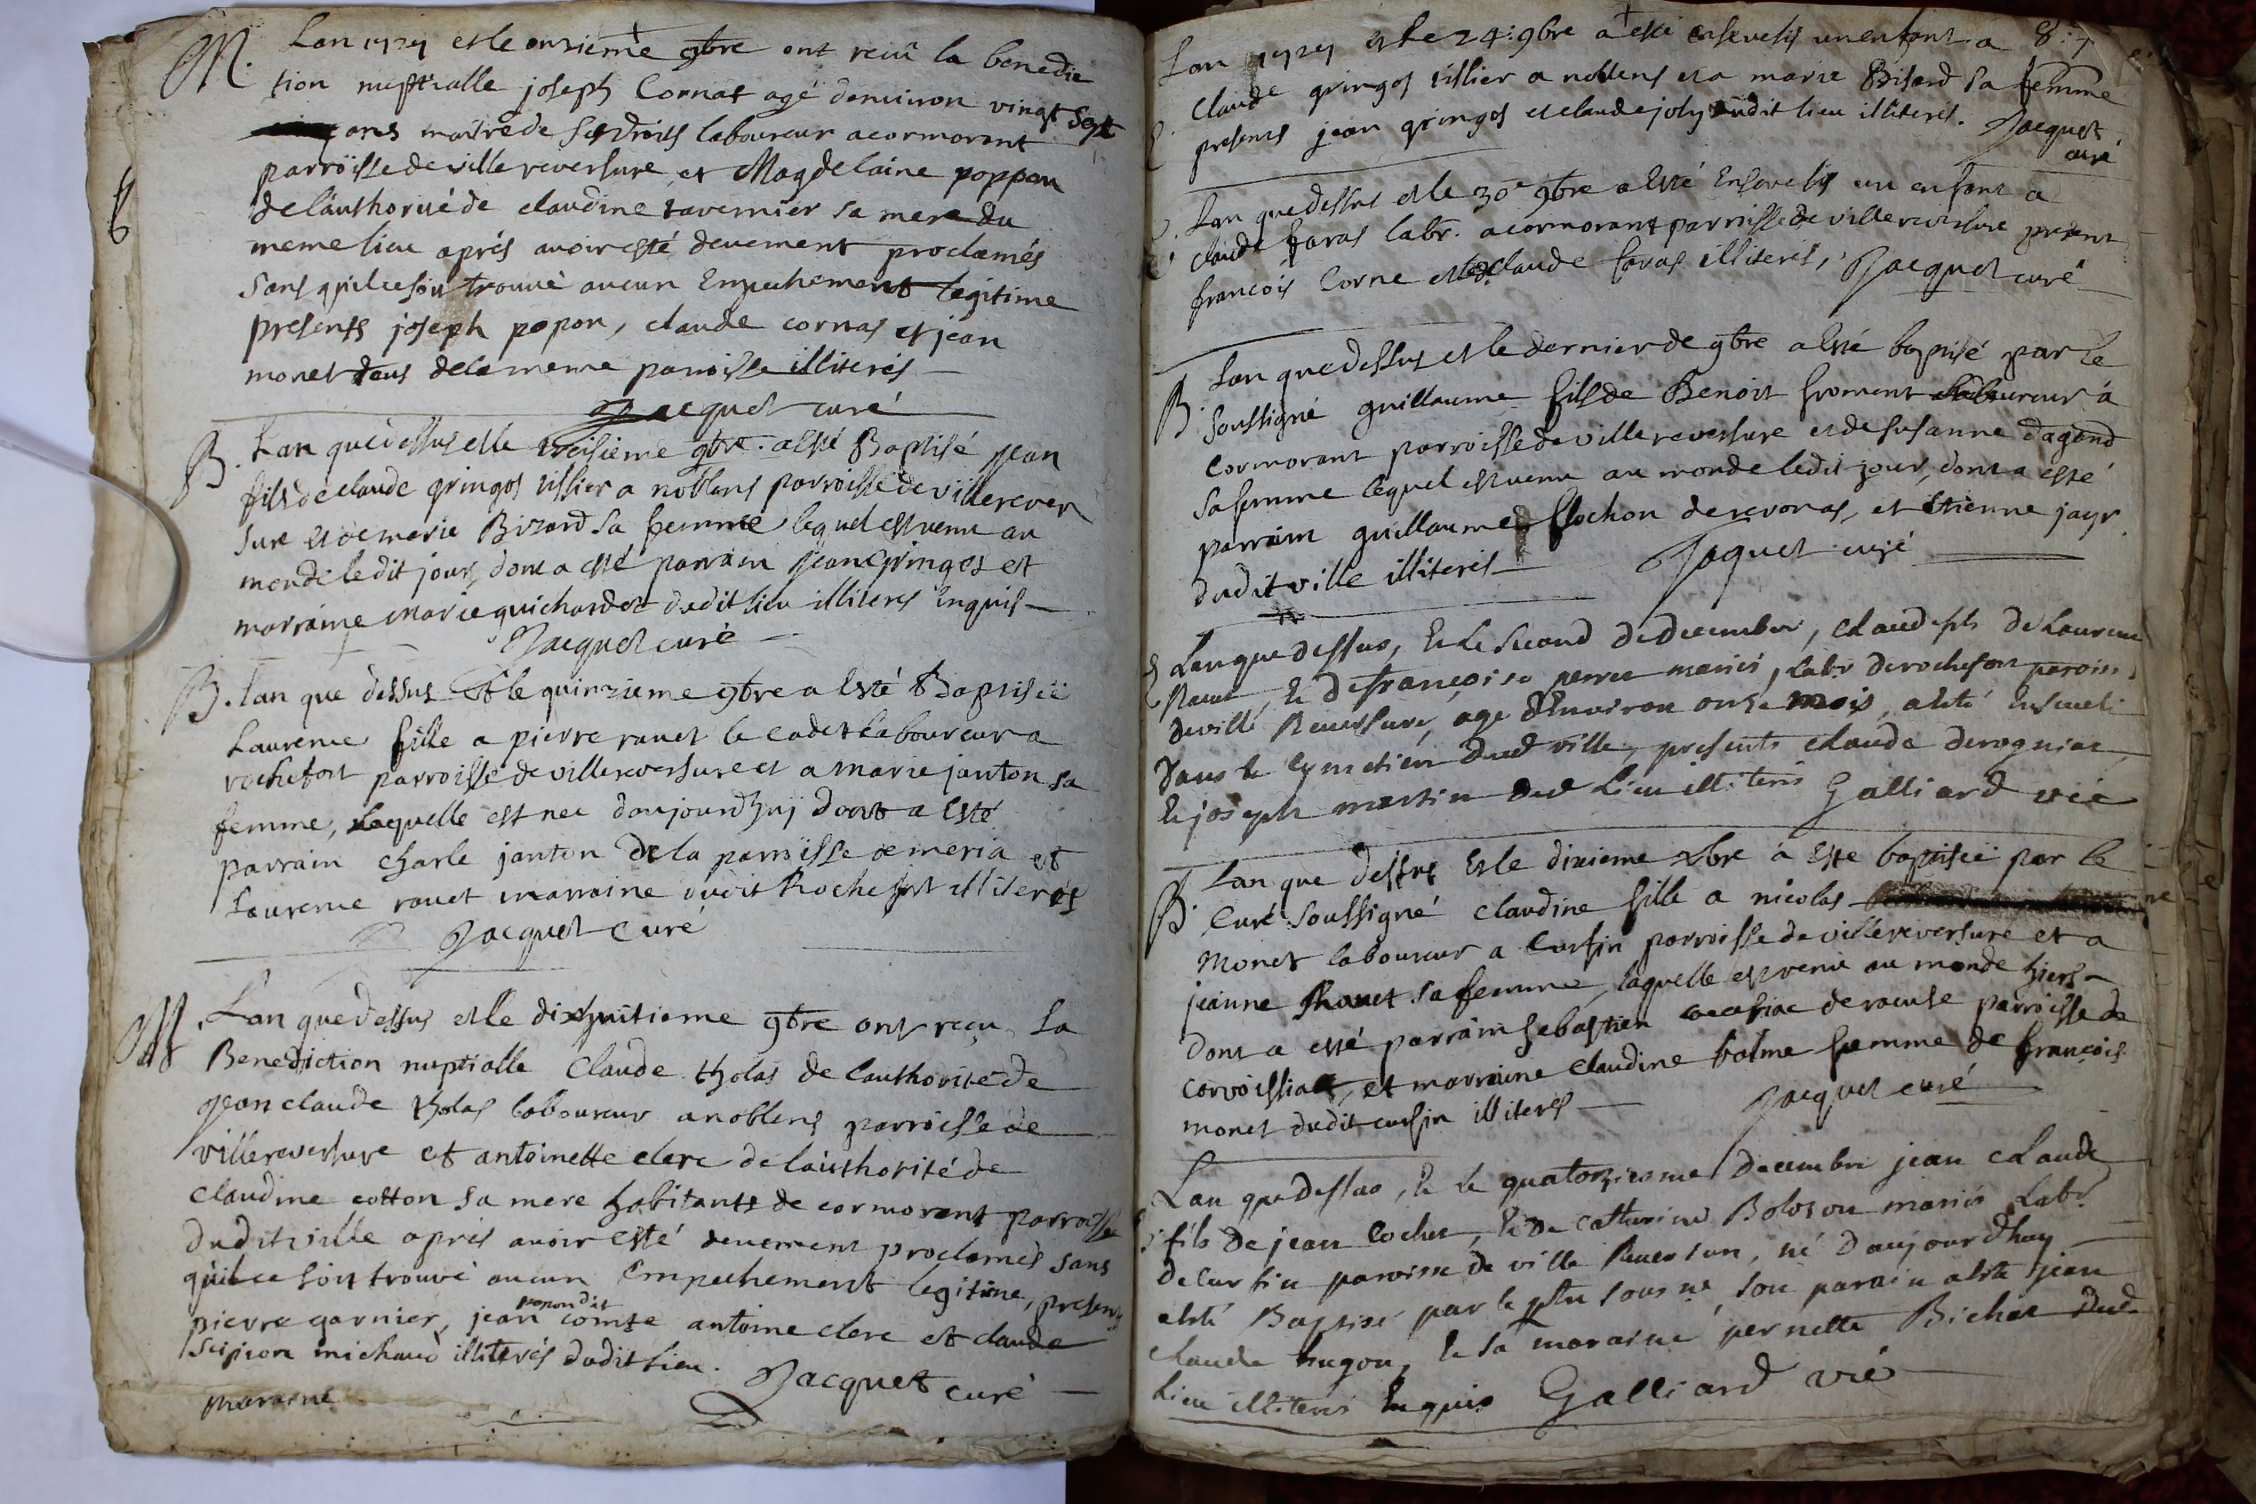 M. Lan 1724 et le onzieme 9bre ont receu la benedic
tion nuptialle joseph Cornas agé denuiron vingt sept
ans maitre de ses droits laboureur a cormorant
parroisse de villereversure et Magdelaine poppon
de lauthorité de claudine tavernier sa mere du
meme lieu aprés avoir esté deuement proclamés
sans quil ce soit trouvé aucun Empechement legitime
presents joseph popon, claude cornas et jean
monet tous de la meme parroisse illiterés
Jacquet curé
B. Lan que dessus et le treisieme 9bre a esté Baptisé jean
fils de claude gringos tissier a noblens parroisse de villerever
sure et de marie Bizard sa femme lequel est venu au
monde ledit jour, dont a esté parrain jean gringos et
marraine marie guichardet dudit lieu illiteres Enquis
Jacquet curé
B. Lan que dessus et le quinzieme 9bre a esté Baptiseé
Laurence fille a pierre ravet le cadet laboureur a
rochefort parroisse de villereversure et a marie janton sa
femme, laquelle est nee daujourdhuj dont a esté
parrain charle janton de la parroisse de meria et
Laurence ravet marraine dudit Rochefort illiterés
Jacquet Curé
M. Lan que dessus et le dixhuitieme 9bre ont reçu la
Benediction nuptialle Claude tholas de lauthorité de
jean claude tholas laboureur a noblens parroisse de
villereversure et antoinette clerc de lauthorité de
claudine cotton sa mere habitante de cormorant parroisse
dudit ville aprés avoir esté deuement proclamés sans
quil ce soit trouvé aucun Empechement legitime, presents
pierre garnier, jean popon dit comte antoine clerc et claude
scipion michaud illiterés dudit lieu. Jacquet curé
maraine
Lan 1724 et le 24: 9bre a esté enseveli un enfant a 8:7
Claude gringos tissier a noblens et a marie Bisard sa femme
presents jean gringos et claude joly dudit lieu illiterés. Jacquet
curé
Lan que dessus et le 30e 9bre a esté Enseveli un enfant a
claude favas labr. a cormorant parroisse de villereversure present
françois Corne et claude favas illiterés, Jacquet curé
B. Lan que dessus et le dernier de 9bre a esté baptisé par le
soussigné guillaume fils de Benoit froment laboureur á
Cormorant parroisse de villereversure et de susanne dagand
sa femme lequel est venu au monde ledit jour, dont a esté
parrain guillaume flochon de revonas, et etienne jayr
dudit ville illiterés Jaquet curé
Lan que dessus, et le second de decembre, claude fils de Laurent
Ravet, et de françoise perret mariés, labr de rochefort parois.
de ville Reuersure, agé dEnviron onze mois, a esté Enseueli
dans le cymetiere dud ville, presents claude derogniat
et joseph martin dud Lieu illiterés Galliard vic
B. Lan que dessus et le dixieme xbre á este baptiseé par le
Curé soussigné claudine fille a nicolas
monet laboureur a Cursin parroisse de villereversure et a
jeanne Ravet sa femme, laquelle est venue au monde hiers
dont a esté parrain sebastien de racouse parroisse de
corvoissiat, et marraine claudine balme femme de françois
monet dudit cursin illiterés Jacquet curé
Lan que dessus, et le quatorzieme decembre jean claude
fils de jean Cochet, et de catherine Bolozon mariés Labr
de Cursin paroisse de ville Reuersure, né daujourdhuy
a esté Baptisé par le pbre soussné, son parain a esté jean
claude hugon, et sa maraine pernette Bichat dud
Lieu illiterés Enquis Galliard vic